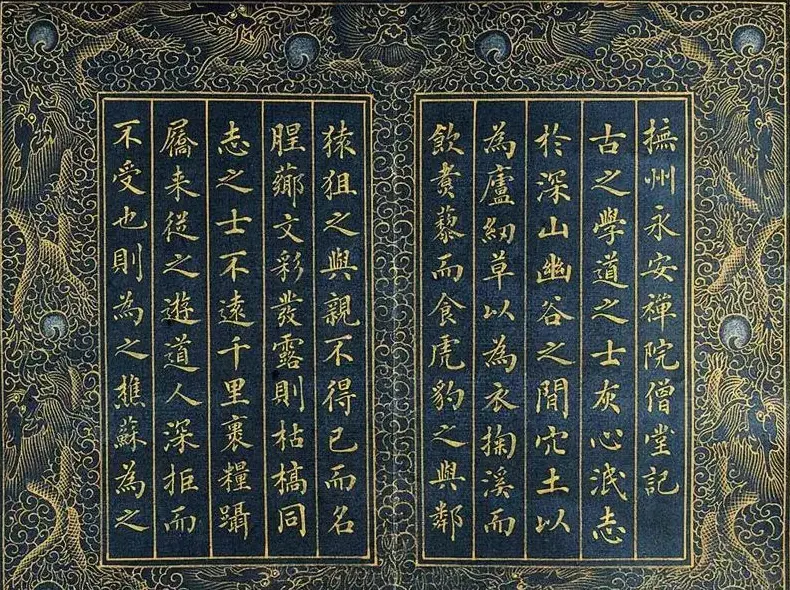 撫州永安禪院僧堂記
古之學道之士灰心泯志
於深山幽谷之間穴土以
為廬紉草以為衣掬溪而
飲煑藜而食虎豹之與鄰
猿狙之與親不得已而名
腥薌文彩發露則枯槁同
志之士不遠千里褁糧躡
屩来從之遊道人深拒而
不受也則為之樵蘇為之